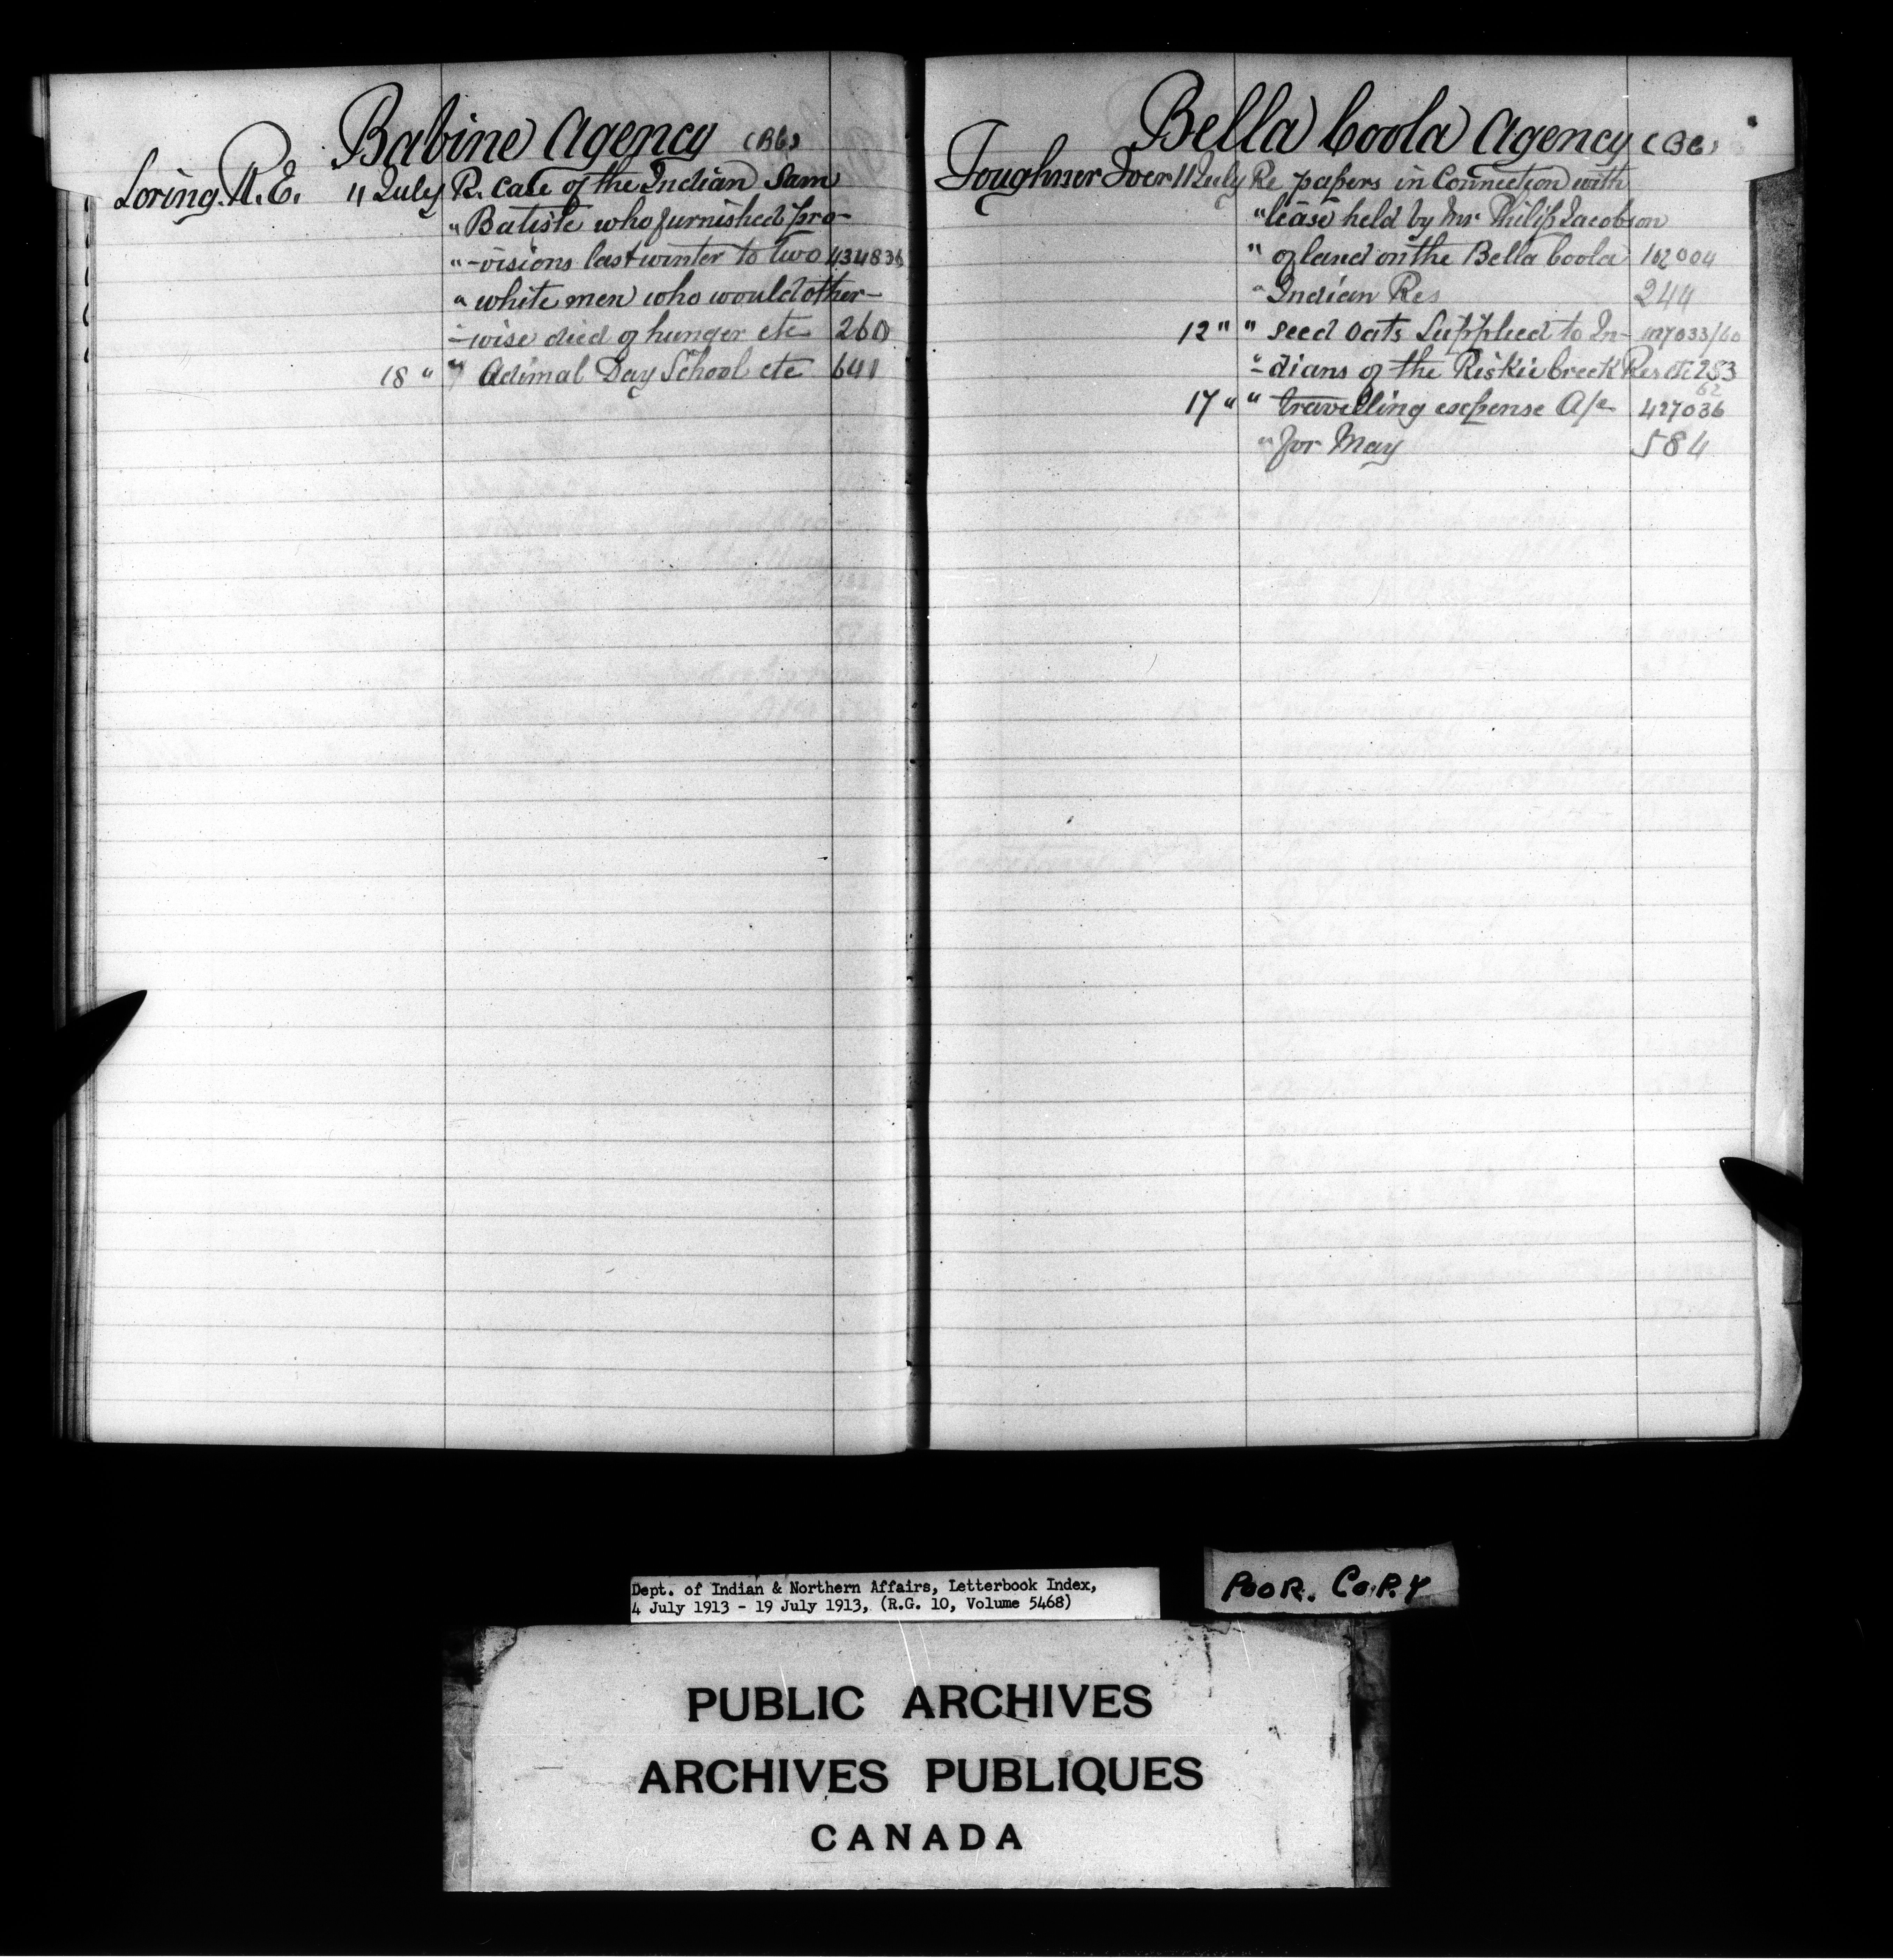 Babine Agency (B6)
Loring. R. E. 11 July R. case of the Indian Sam
" Batiste who furnished pro-
" -visions last winter to two 434836
" white men who would other-
-wise died of hunger etc 260
18 " " Day School etc 641
Bella Coola Agency (B6)
Fougner Iver 11 July Re papers in Connection with
" lease held by Mr Philip Jacobson
" of land on the Bella Coola 162004
" Indian Res 244
12 " " seed oats Supplied to In- 427033/60
" -dians of the Riskie Creek Res etc 283
17 " " travelling expense A/c 427036 62
" for May 584
Dept. of Indian & Northern Affairs, Letterbook Index,
4 July 1913 - 19 July 1913, (R.G. 10, Volume 5468)
POOR. COPY
PUBLIC ARCHIVES
ARCHIVES PUBLIQUES
CANADA